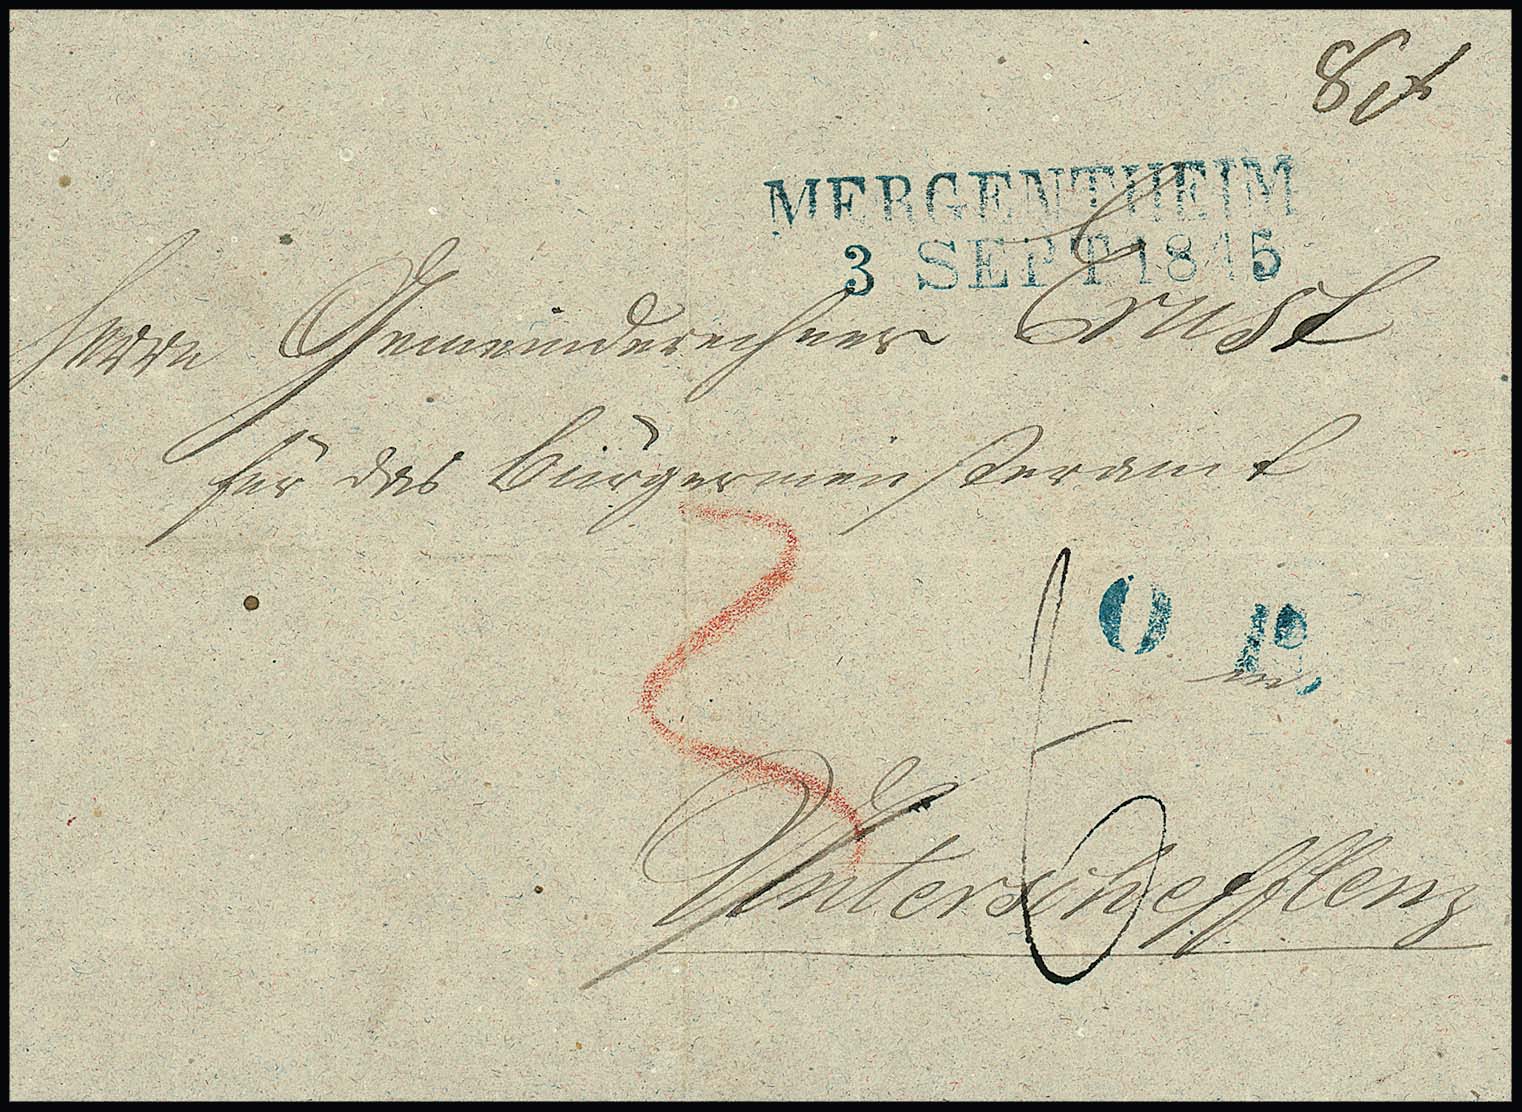 8
MERGENTHEIM
3 SEPT 1845
Herrn Gemeinderechner Ernst
für das Bürgermeisteramt
O P.
in
Unterschefflenz